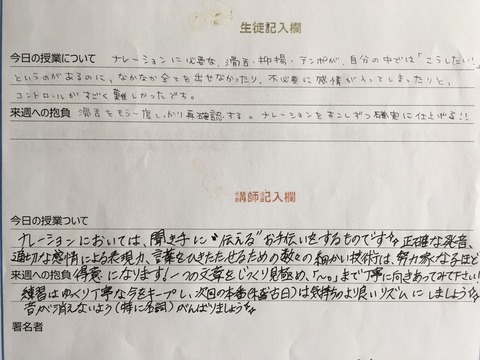 生徒記入欄
今日の授業について ナレーションに必要な、滑舌・抑揚・テンポが、自分の中では「こうしたい!」
というのがあるのに、なかなか全てを出せなかったり、不必要に感情が入ってしまったりと、
コントロールがすごく難しかったです。
来週への抱負 滑舌をもう一度しっかり再確認する。ナレーションをすこしずつ確実に仕上げる!!
講師記入欄
今日の授業ついて
ナレーションにおいては、聞き手に"伝える"お手伝いをするものです 正確な発音、
適切な感情による表現力、言葉をひきたたせるための数々の細かい技術は、努力家なるほど
来週への抱負 得意になります!一つの文章をじっくり見極め、「〜。」まで丁寧に向きあってみて下さい!
練習はゆっくり丁寧な今をキープし、次回の本番(稽古日)は気持ちのより良いリズムにしましょう
音が消えないよう(特に名詞)がんばりましょう
署名者